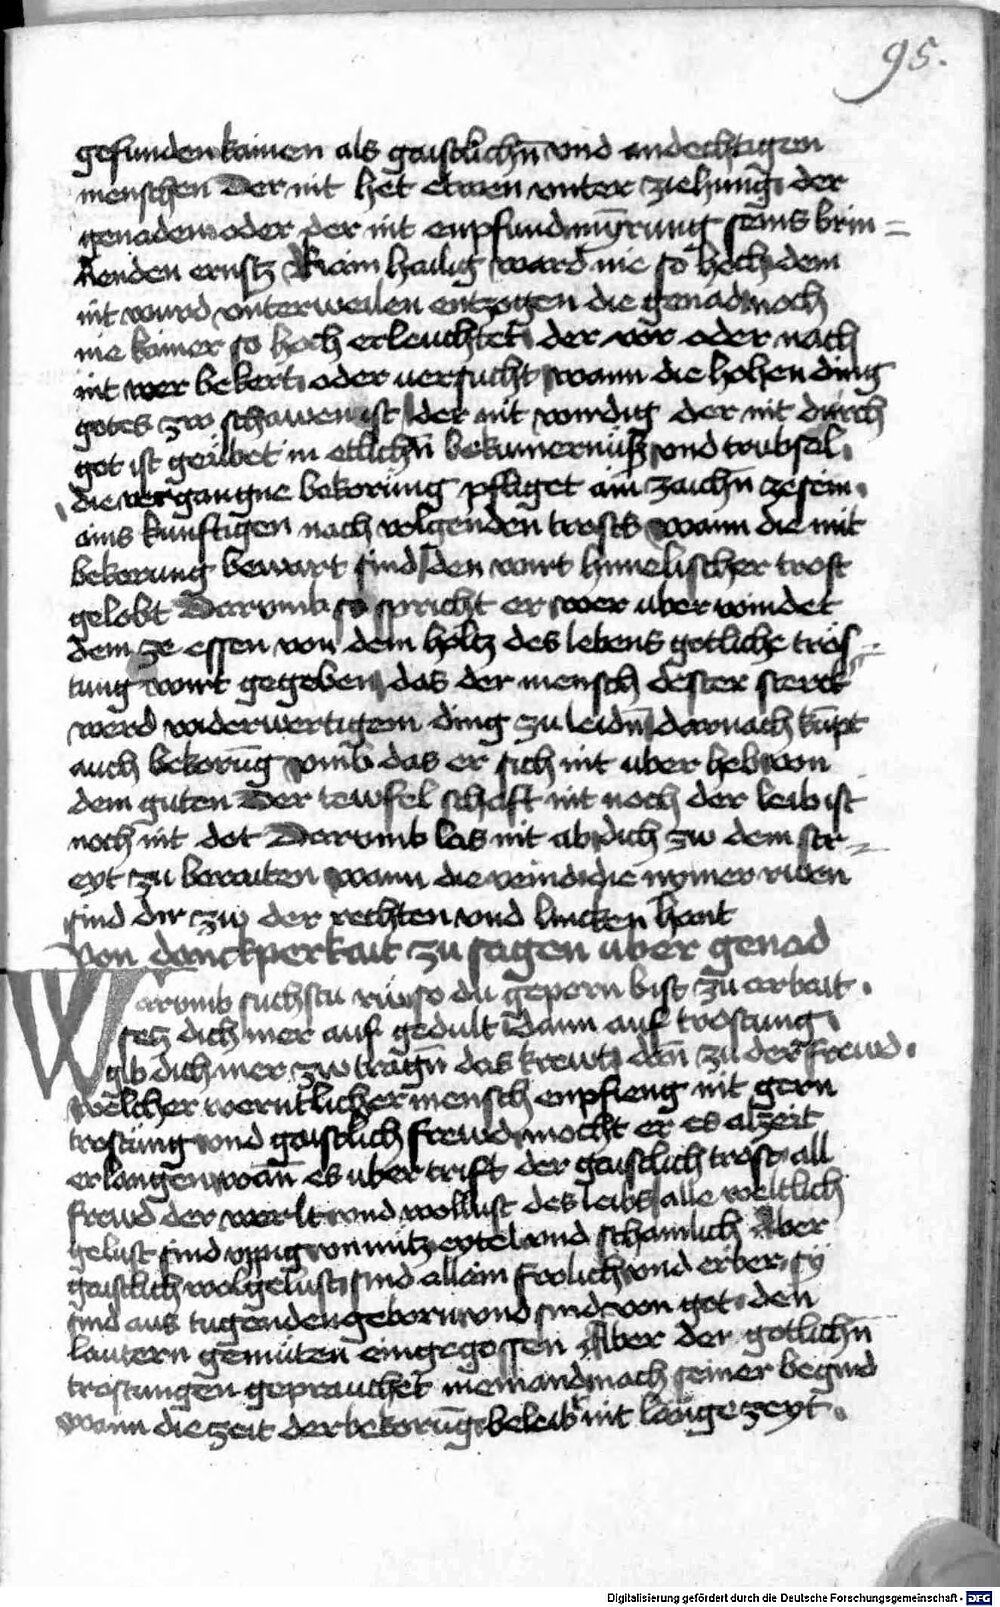 95.
gefunden kainen als gaistlichn̄ vnd andechtigen
menschen Der nit het etwen vnter ziehung der
genaden oder der nit enpfund mynrung seins brin=
nenden ernstz Kain hailig ward nie so hoch dem
nit wurd vnterweilen entzogen die genad noch
nie kainer so hoch erleuchtet der vor oder nach
nit wer bekert oder versucht wann die hohen ding
gotes zw schawen ist der nit wirdig der nit durch
got ist geübet in etlichn̄ bekumernüß vnd trubsal
die vergangne bekorung pfliget ain zaichn̄ ze sein
ains kunftigen nach volgenden trosts wann die mit
bekorung bewart sind den wirt himelischer trost
gelobt Darumb so spricht er wer uber windet
dem ze essen von dem holtz des lebens gotliche trös=
tung wirt gegeben das der mensch dester sterck
werd widerwertigem ding zu leidn̄ darnach kūpt
auch bekorūg vmb das er sich nit uber heb von
dem guten Der tewfel schaft nit noch der leib ist
noch nit dot Darumb las nit ab dich zw dem str=
eyt zu beraiten wann die veind die nymer rwen
sind dir zw der rechten vnd lincken hant
Von danckperkait zu sagen uber genad
Warumb suchstu rw so du geporn bist zu arbait
setz dich mer auf gedult dann auf trostung
gib dich mer zw tragn̄ das krewtz dan̄ zu der frewd
welcher werntlicher mensch enpfieng nit gern
trostung vnd gaistlich frewd mocht er es alzeit
erlangen wan̄ es uber trift der gaistlich trost all
frewd der werlt vnd wollust des leibs alle weltlich
gelust sind vppig vnnütz eytel vnd schamlich Aber
gaistlich wolgelust sind allain frolich vnd erber sy
sind aus tugenden geborn vnd sind von got den
lautern gemüten eingegossen Aber der gotlichn̄
trostungen geprauchet niemand nach seiner begird
wann die zeit der bekorūg beleibt nit lange zeyt
Digitalisierung gefördert durch die Deutsche Forschungsgemeinschaft - DFG